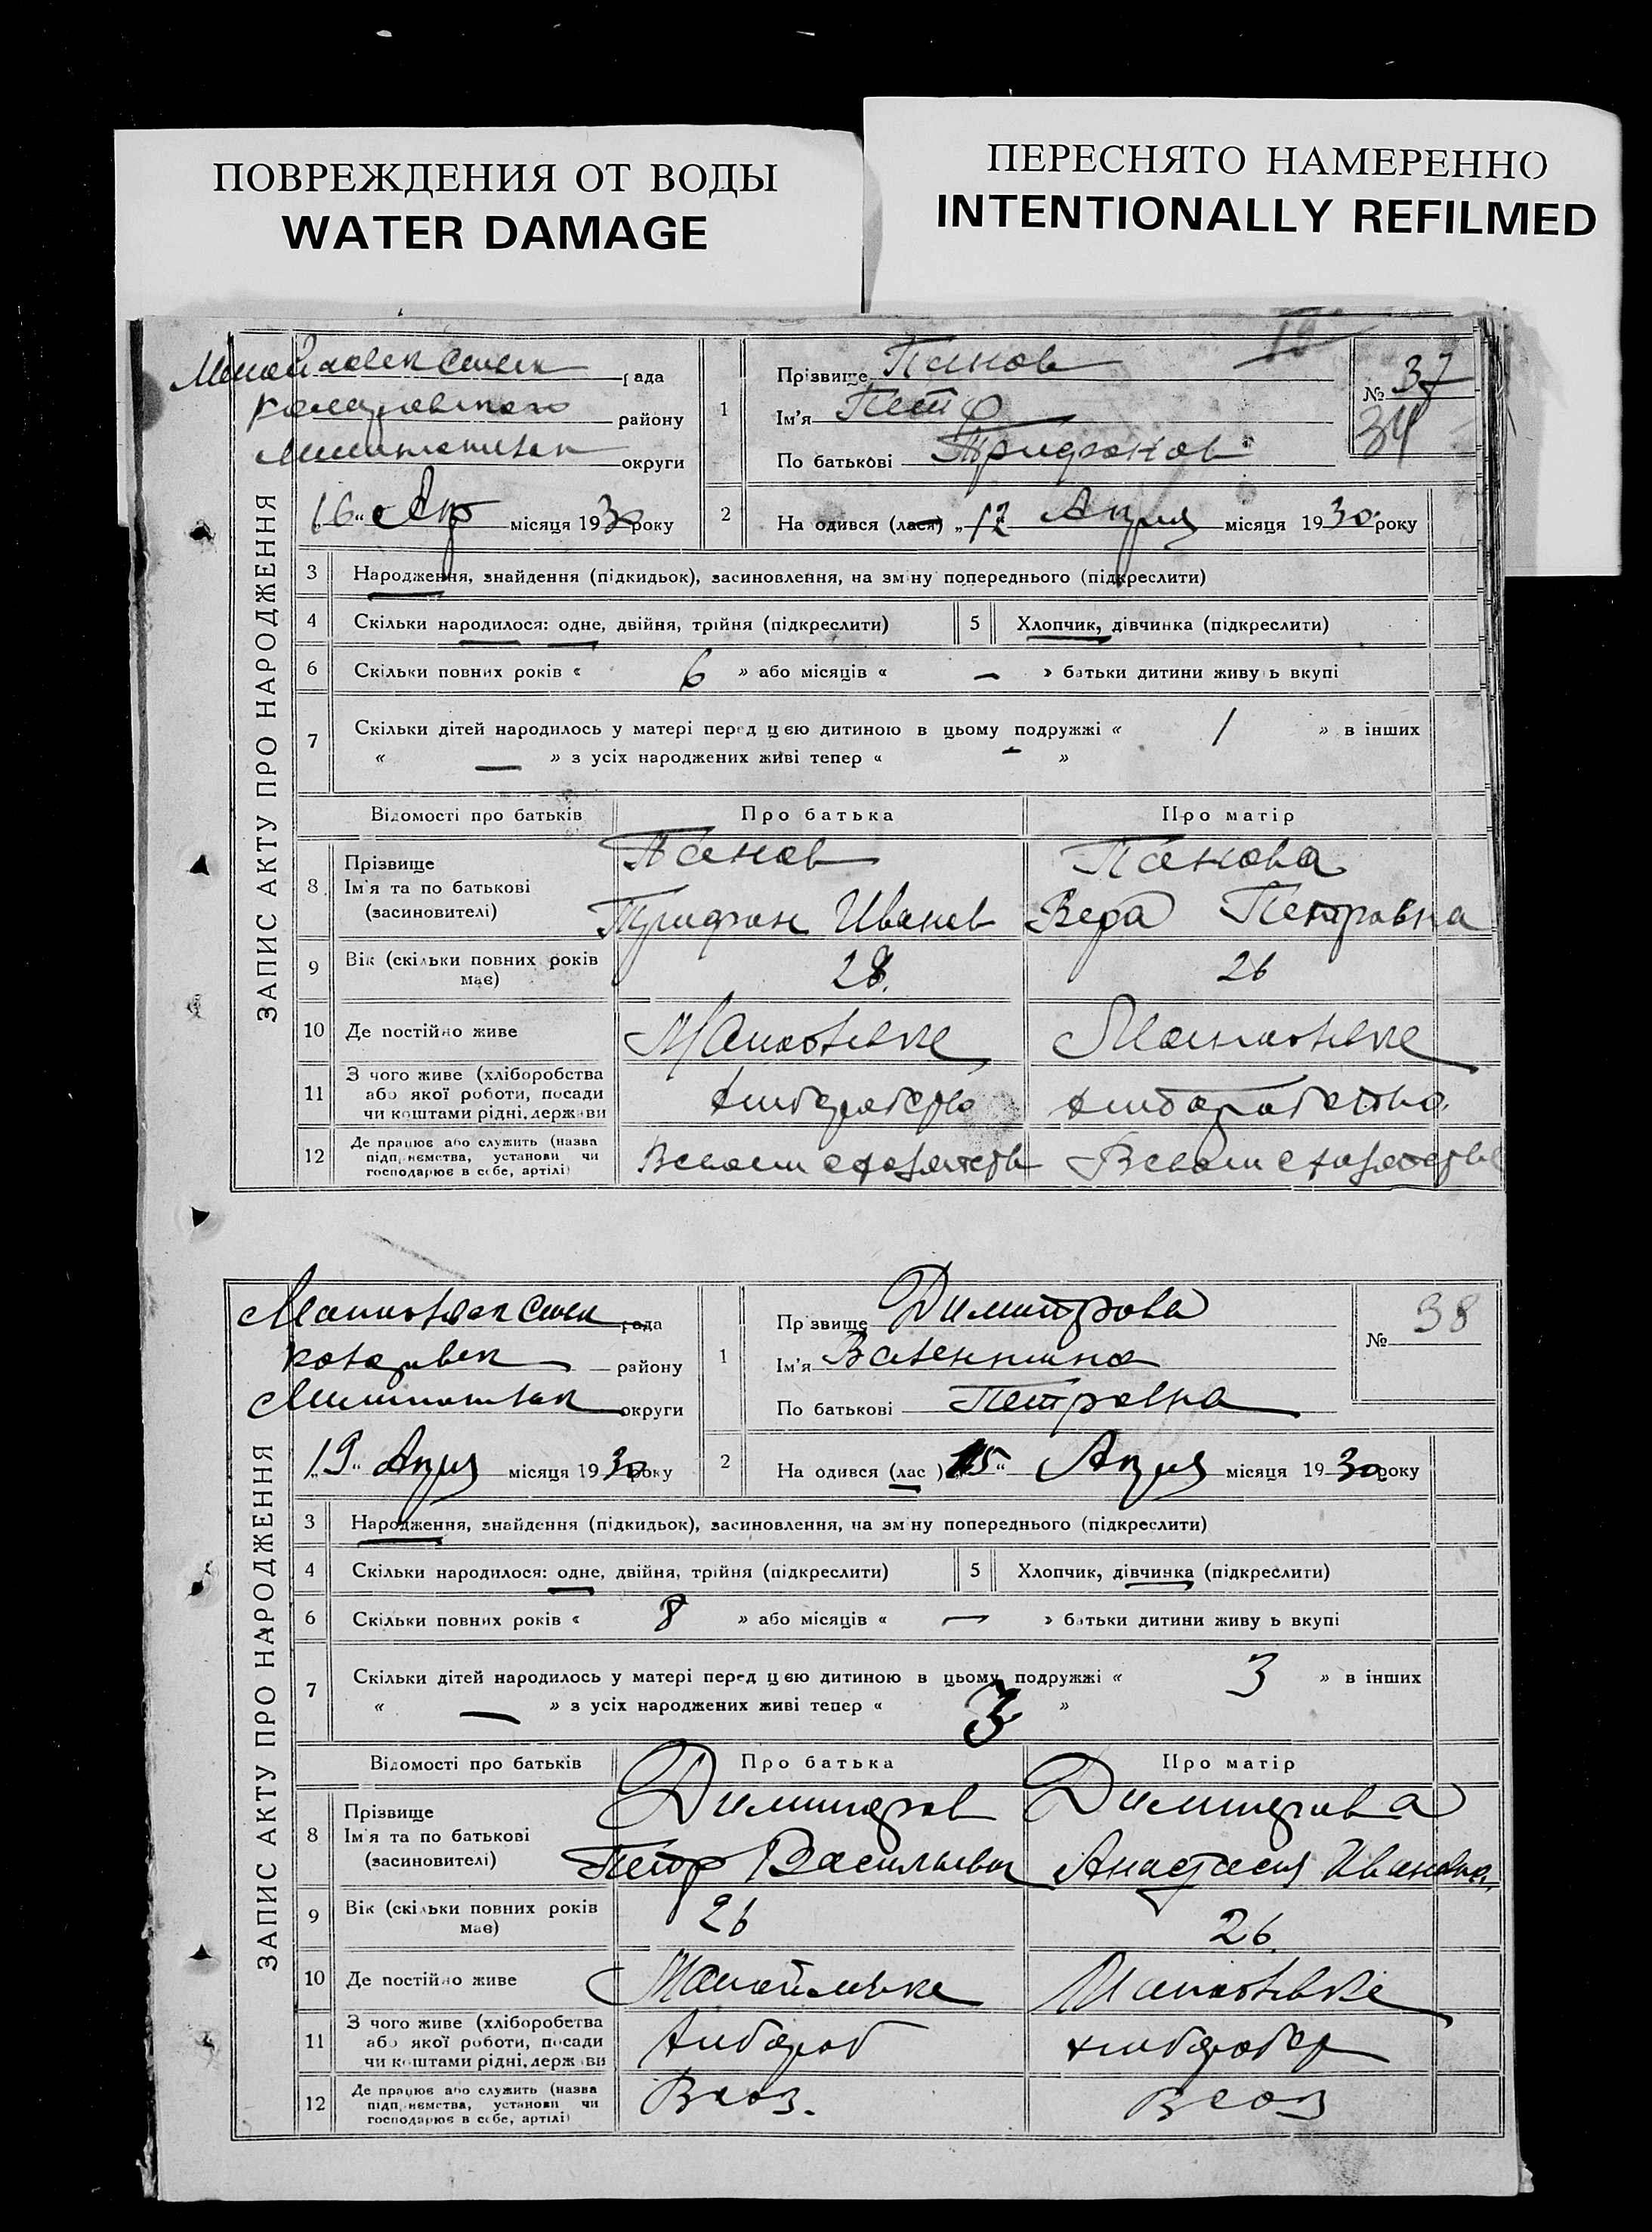 ПОВРЕЖДЕНИЯ ОТ ВОДЫ
WATER DAMAGE
ПЕРЕСНЯТО НАМЕРЕННО
INTENTIONALLY REFILMED
ЗАПИС АКТУ ПРО НАРОДЖЕННЯ
рада
району
округи
„16“ Апр місяця 1930 року
1
Прізвище Панов
Ім'я Петр
По батькові Трифонов
№ 37
34
2
На одився (лася) „12“ Апреля місяця 1930 року
3 Народження, знайдення (підкидьок), засиновлення, на зміну попереднього (підкреслити)
4 Скільки народилося: одне, двійня, трійня (підкреслити)
5 Хлопчик, дівчинка (підкреслити)
6 Скільки повних років « 6 » або місяців « — » батьки дитини живу ь вкупі
7 Скільки дітей народилось у матері перед цією дитиною в цьому подружжі « 1 » в інших
« — » з усіх народжених живі тепер « - »
Відомості про батьків Про батька Про матір
8 Прізвище
Ім'я та по батькові
(засиновителі)
Панов Панова
Трифон Иванов Вера Петровна
9 Вік (скільки повних років
має)
28. 26
10 Де постійно живе
11 З чого живе (хліборобства
або якої роботи, посади
чи коштами рідні, держави
12 Де працює або служить (назва
підприємства, установи чи
господарює в себе, артілі)
ЗАПИС АКТУ ПРО НАРОДЖЕННЯ
рада
району
округи
„19“ Апреля місяця 1930 року
1
Пр звище Димитрова
Ім'я Валентина
По батькові Петровна
№ 38
2
На одився (лас ) „15“ Апреля місяця 1930 року
3 Народження, знайдення (підкидьок), засиновлення, на зміну попереднього (підкреслити)
4 Скільки народилося: одне, двійня, трійня (підкреслити)
5 Хлопчик, дівчинка (підкреслити)
6 Скільки повних років « 8 » або місяців « — » батьки дитини живу ь вкупі
7 Скільки дітей народилось у матері перед цією дитиною в цьому подружжі « 3 » в інших
« — » з усіх народжених живі тепер « 3 »
Відомості про батьків Про батька Про матір
8 Прізвище
Ім'я та по батькові
(засиновителі)
Димитров Димитрова
Петр Васильевич Анастасия Ивановна
9 Вік (скільки повних років
має)
26 26
10 Де постійно живе
11 З чого живе (хліборобства
або якої роботи, посади
чи коштами рідні, держави
12 Де працює або служить (назва
підприємства, установи чи
господарює в себе, артілі)